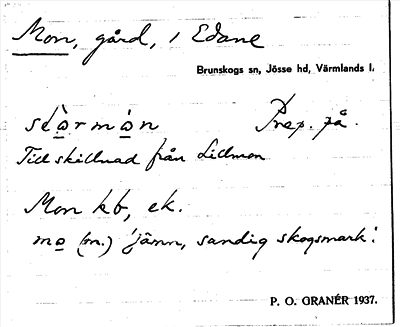 Mon, gård, i Edane
Brunskogs sn, Jösse hd, Värmlands l.
stò̱rmò̱n Prep. på.
Till skillnad från Lillmon
Mon kb, ek.
mo̱ (m.) 'jämn, sandig skogsmark'.
P. O. GRANÉR 1937.